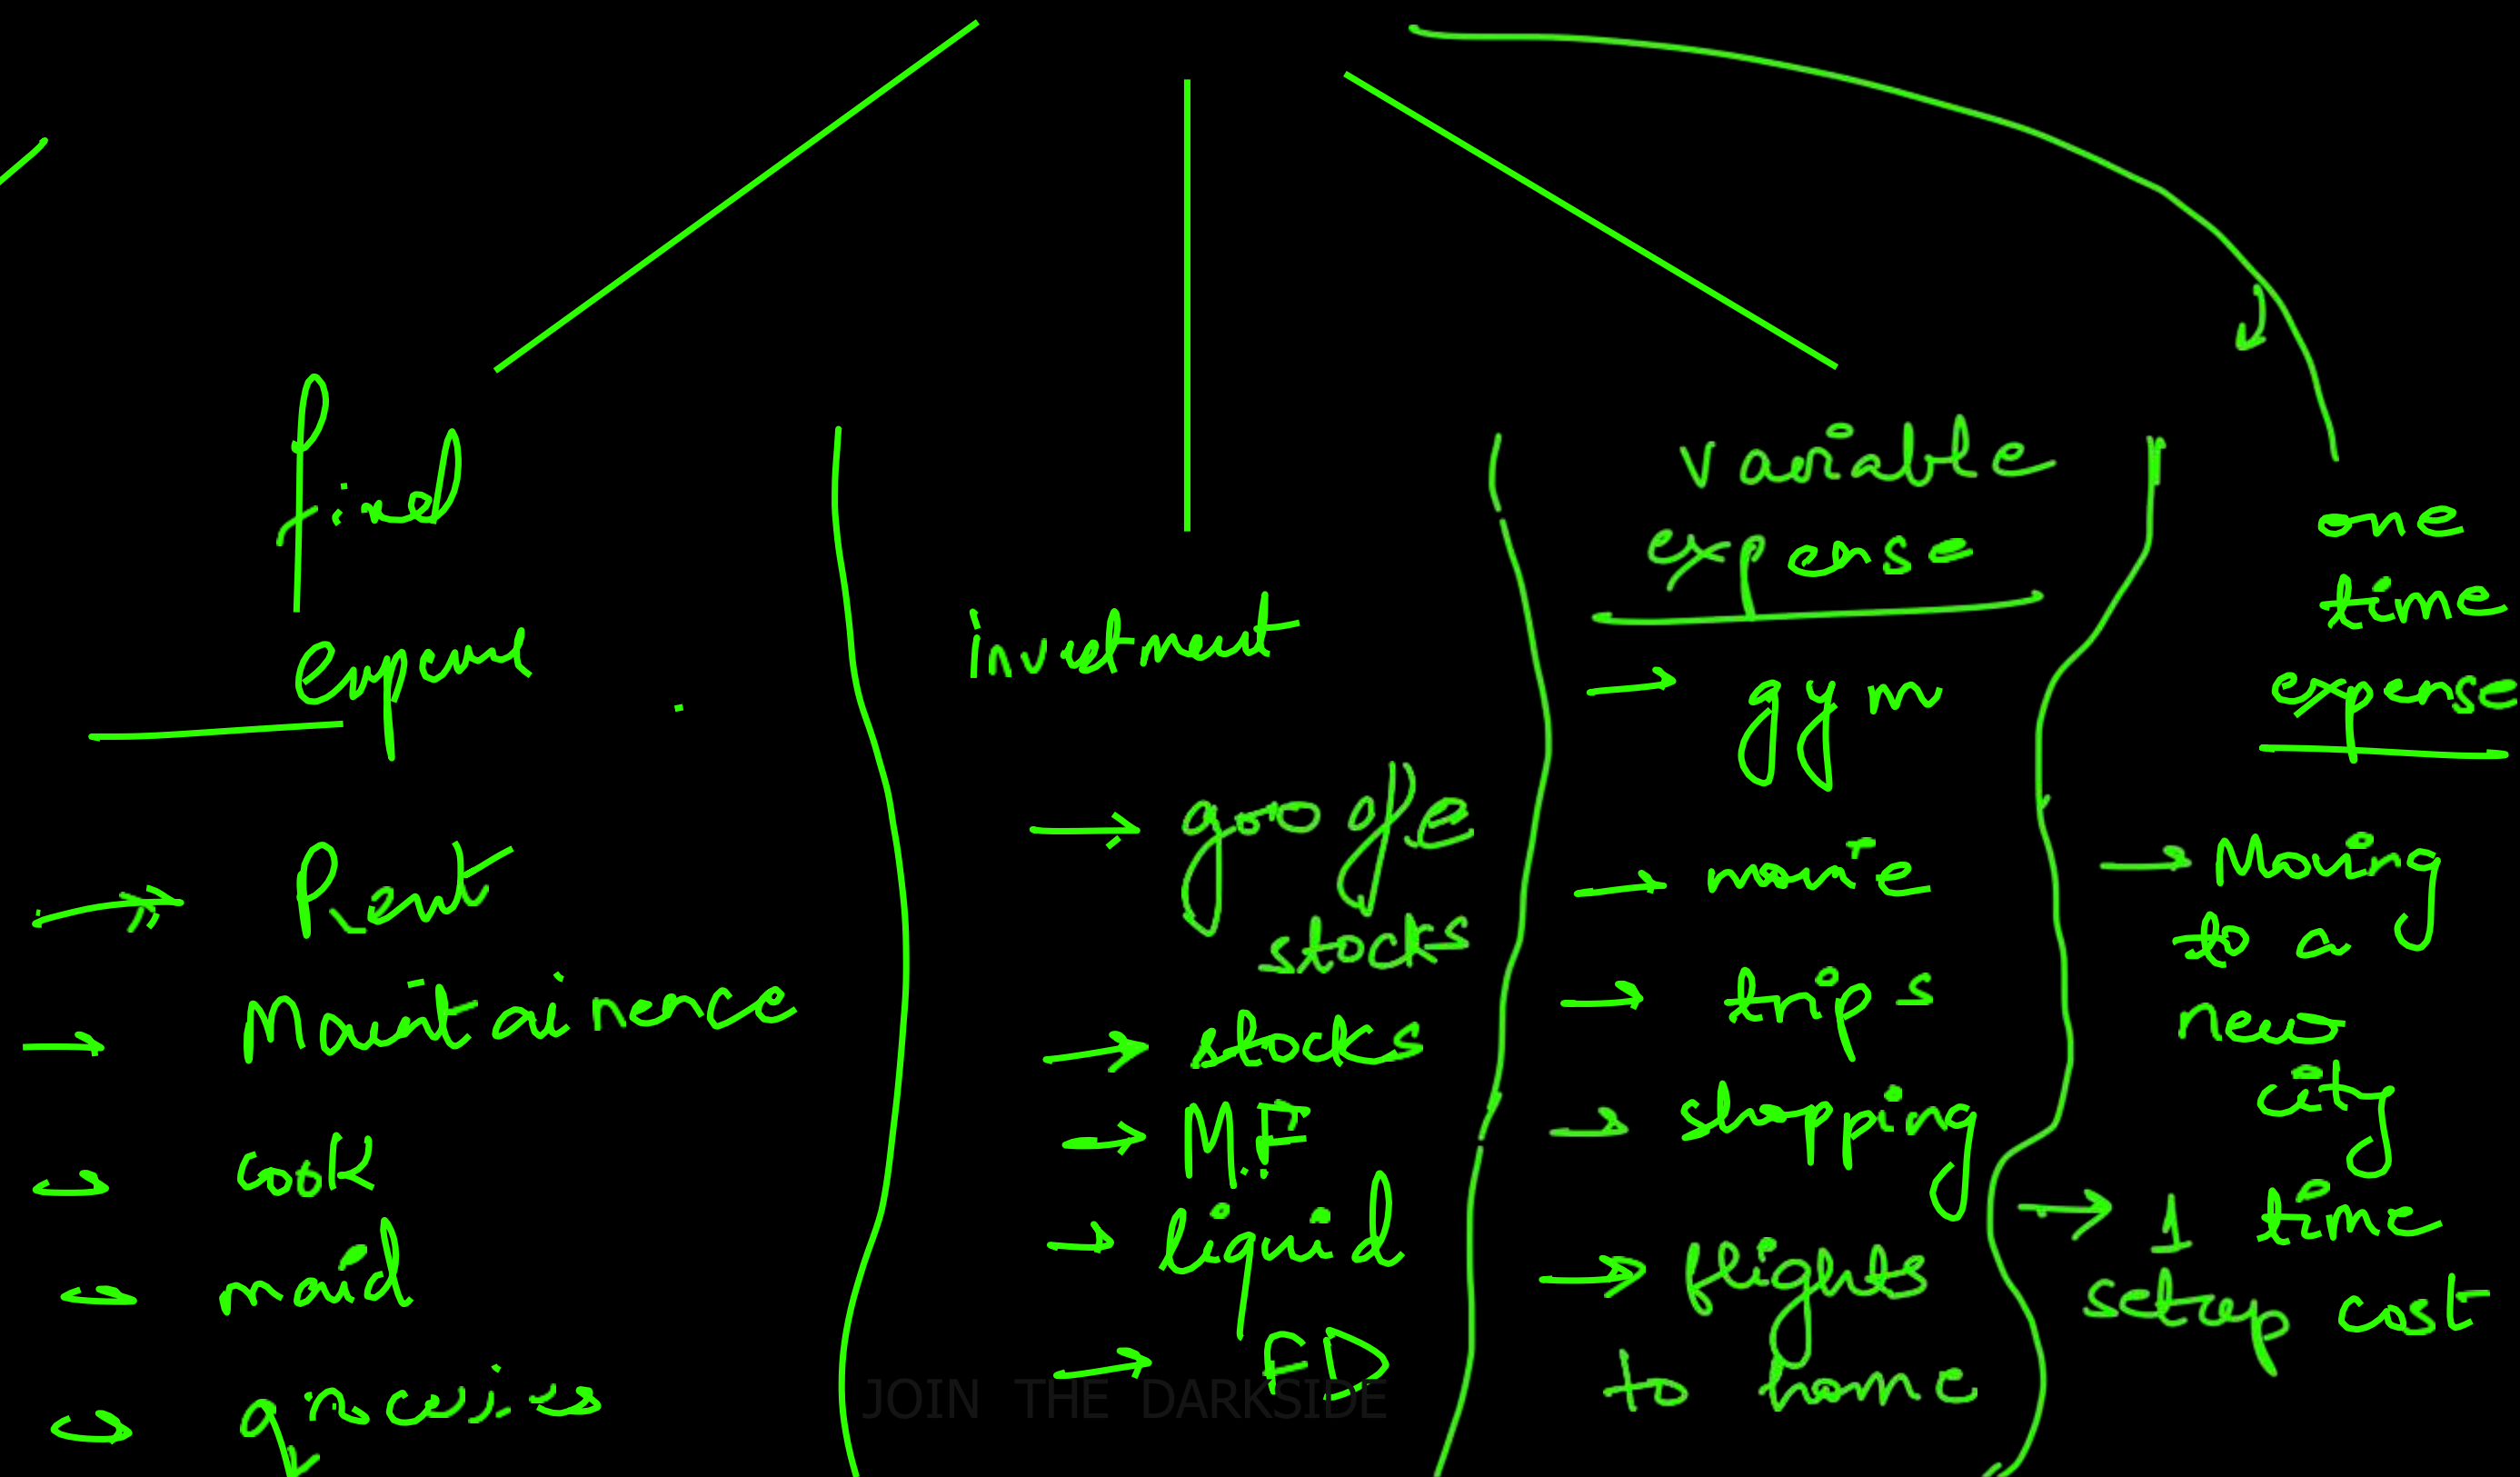 fixed
expense
→ Rent
→ Maintainence
→ cook
→ maid
→ groceries
investment
→ google
stocks
→ stocks
→ M.F
→ liquid
→ FD
variable
expense
→ gym
→ movie
→ trips
→ shopping
→ flights
to home
one
time
expense
→ Moving
to a
new
city
→ 1 time
setup cost
JOIN THE DARKSIDE